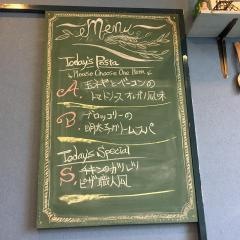 Menu
Today's Pasta
Please Choose One Item
A. 玉ネギとベーコンの
トマトソース オレガノ風味
B. ブロッコリーの
明太子クリームパスタ
Today's Special
S. チキンのカツレツ
ピザ職人風